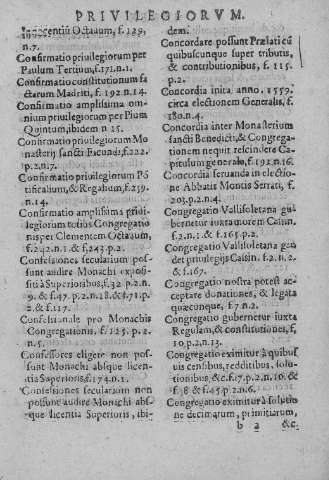 PRIVILEGIORVM.
Innocentiũ Octauum, f. 129,
n.7.
Cõfirmatio priuilegiorum per
Paulum Tertium, f.171.n.1.
Cõfirmatio constitutionum fa
ctarum Madriti, f. 192. n.14.
Confirmatio amplissima om
nium priuilegiorum per Pium
Quintum, ibidem n 15.
Confirmatio priuilegiorum Mo
nasterij sancti Facundi, f.222.
p.2.n.7.
Cõfirmatio priuilegiorum Põ
tificalium, & Regalium, f.239.
n.14.
Confirmatio amplissima priui-
legiorum totius Congregatio
nis per Clementem Octauum,
f.242.n.1. & f.243.p.2.
Confessiones secularium pos-
sunt audire Monachi exposi-
ti à Superioribus, f.32 p.2.n.
9. & f.47. p.2.n.18. & f.71.p.
2. & f.117.
Confessionale pro Monachis
Congregationis. f. 125. p.2.
n.5.
Confessores eligere non pos-
sunt Monachi absque licen-
tia Superioris, f.174.n.1.
Confessiones secularium non
possunt audire Monachi abs-
que licentia Superioris, ibi-
dem.
Concordare possunt Prælati cũ
quibuscunque super tributis,
& contributionibus, f. 115.
p.2.
Concordia inita anno. 1559.
circa electionem Generalis, f.
180.n.4.
Concordia inter Monasterium
sancti Benedicti, & Congrega-
tionem nequit rescindere Ca-
pitulum generale, f.192.n.16.
Concordia seruanda in electio-
ne Abbatis Montis Serrati, f.
203.p.2.n.4.
Congregatio Vallisoletana gu-
bernetur iuxta morem Cassin.
f.2.n.1. & f.165.p.2.
Congregatio Vallisoletana gau-
det priuilegijs Cassin. f.2.n.2.
& f.167.
Congregatio nostra potest ac-
ceptare donationes, & legata
quæcunque, f.7.n.2.
Congregatio gubernetur iuxta
Regulam, & constitutiones, f.
10.p.2.n.13.
Congregatio eximitur à quibus
uis censibus, redditibus, solu-
tionibus, &c.f.17.p.2.n.16. &
f.38. & f.45.p.2.n.6.
Congregatio eximitur à solutio
ne decimarum, primitiarum,
b 2 &c.